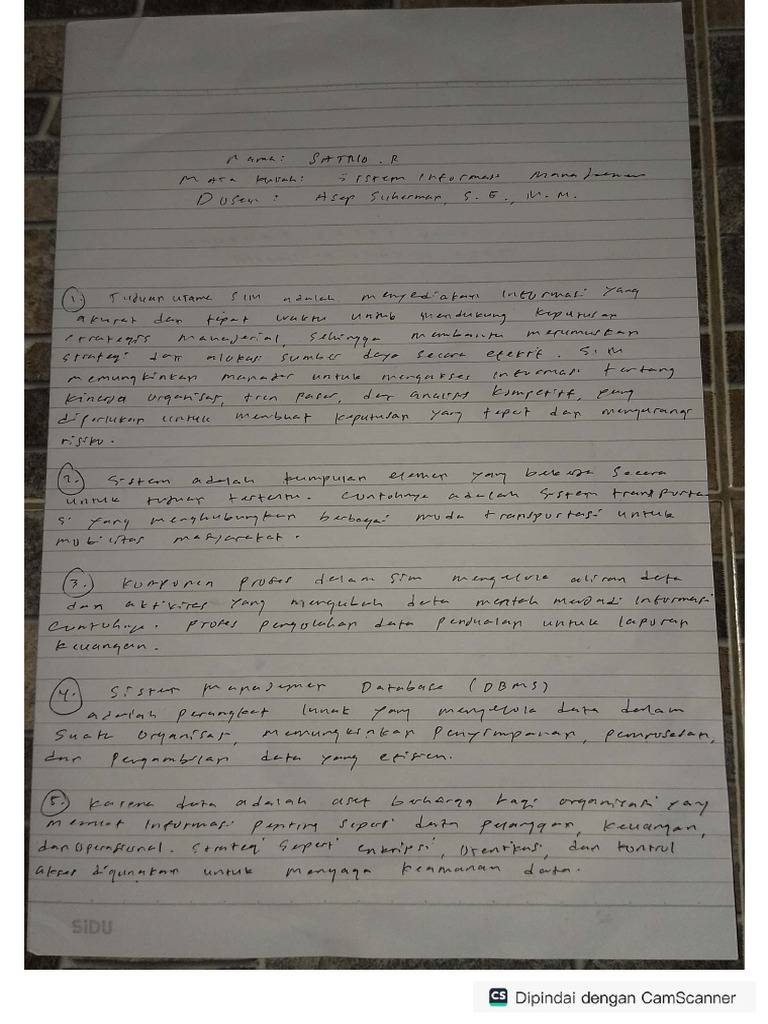 Nama: SATRIO. R
Mata Kuliah: Sistem Informasi Manajemen
Dosen: Asep Suherman, S.E., M.M.
1. Tujuan utama SIM adalah menyediakan informasi yang
akurat dan tepat waktu untuk mendukung keputusan
strategis manajerial, sehingga membantu merumuskan
strategi dan alokasi sumber daya secara efektif. SIM
memungkinkan manajer untuk mengakses informasi tentang
kinerja organisasi, tren pasar, dan analisis kompetitif, yang
diperlukan untuk membuat keputusan yang tepat dan mengurangi
risiko.
2. Sistem adalah kumpulan elemen yang bekerja secara
untuk tujuan tertentu. Contohnya adalah sistem transporta
si yang menghubungkan berbagai moda transportasi untuk
mobilitas masyarakat.
3. Komponen proses dalam SIM mengelola aliran data
dan aktivitas yang mengubah data mentah menjadi informasi
Contohnya. Proses pengolahan data penjualan untuk laporan
keuangan.
4. Sistem Manajemen Database (DBMS)
adalah perangkat lunak yang mengelola data dalam
suatu organisasi, memungkinkan penyimpanan, pemrosesan,
dan pengambilan data yang efisien.
5. Karena data adalah aset berharga bagi organisasi yang
memuat informasi penting seperti data pelanggan, keuangan,
dan operasional. Strategi seperti enkripsi, otentikasi, dan kontrol
akses digunakan untuk menjaga keamanan data.
SiDU
CS Dipindai dengan CamScanner